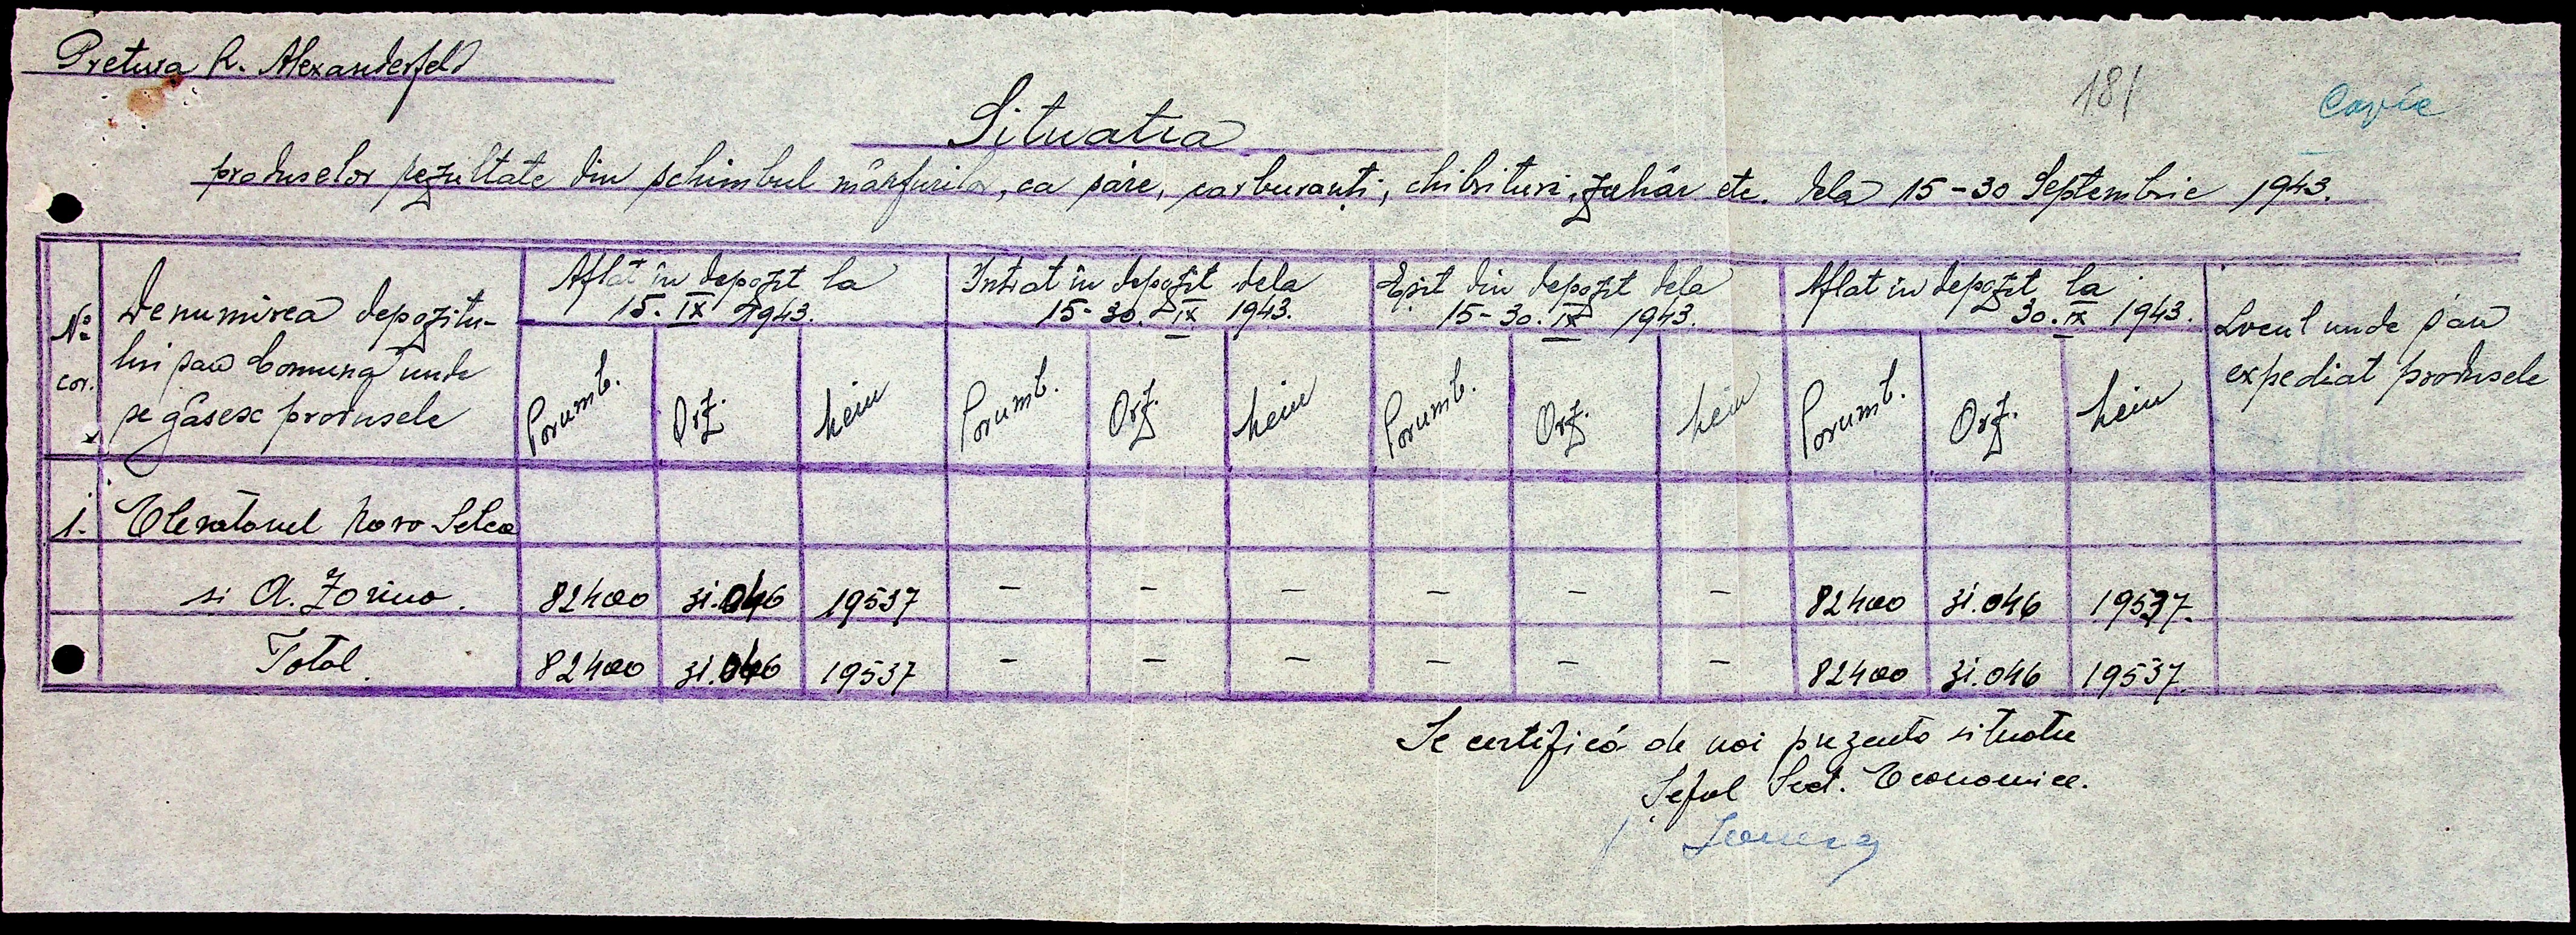 Pretura R. Alexanderfeld
181
Copie
Situatia
produselor rezultate din schimbul mărfurilor, ca sare, carburanți, chibrituri, zahăr etc. dela 15-30 Septembrie 1943.
No cor.
Denumirea depozitu-
lui sau Comuna unde
se găsesc produsele
Aflat în depozit la
15. IX 1943.
Intrat în depozit dela
15-30. IX 1943.
Eșit din depozit dela
15-30. IX 1943.
Aflat în depozit la
30. IX 1943.
Locul unde s'au
expediat produsele
Porumb. Orz. Mein Porumb. Orz. Mein Porumb. Orz. Mein Porumb. Orz. Mein
1. Elevatorul Novo Selca
si A. Zorino. 82400 31.046 19537 - - - - - - 82400 31.046 19537.
Total. 82400 31.046 19537 - - - - - - 82400 31.046 19537.
Se certifică de noi prezenta situatie
Șeful Sect. Economice.